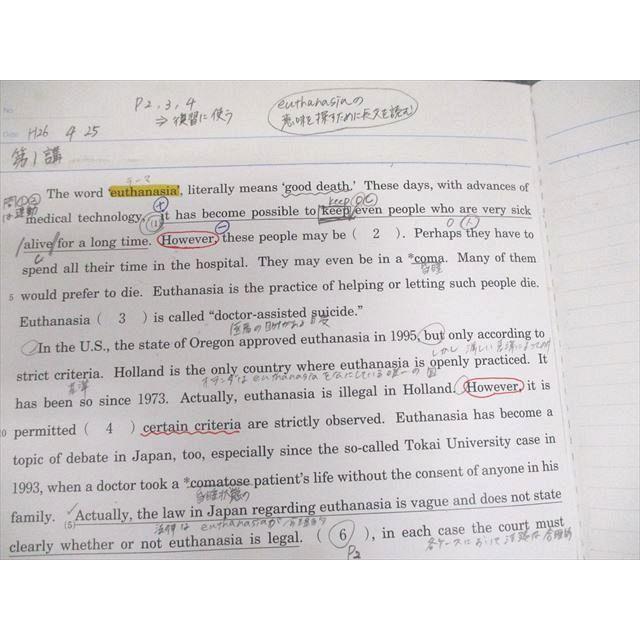 P2, 3, 4
⇒復習に使う
euthanasiaの
意味を探すために長文を読む
No.
Date H26 4 25
第1講
テーマ
The word 'euthanasia', literally means 'good death.' These days, with advances of
keep O C
medical technology, (1) it has become possible to keep even people who are very sick
alive for a long time. However, these people may be ( 2 ). Perhaps they have to
spend all their time in the hospital. They may even be in a *coma. Many of them
昏睡
5 would prefer to die. Euthanasia is the practice of helping or letting such people die.
Euthanasia ( 3 ) is called "doctor-assisted suicide."
In the U.S., the state of Oregon approved euthanasia in 1995, but only according to
しかし
strict criteria. Holland is the only country where euthanasia is openly practiced. It
基準
has been so since 1973. Actually, euthanasia is illegal in Holland. However, it is
10 permitted ( 4 ) certain criteria are strictly observed. Euthanasia has become a
topic of debate in Japan, too, especially since the so-called Tokai University case in
1993, when a doctor took a *comatose patient's life without the consent of anyone in his
昏睡状態の
family. (5) Actually, the law in Japan regarding euthanasia is vague and does not state
法律は euthanasiaが
clearly whether or not euthanasia is legal. ( 6 ), in each case the court must
P2